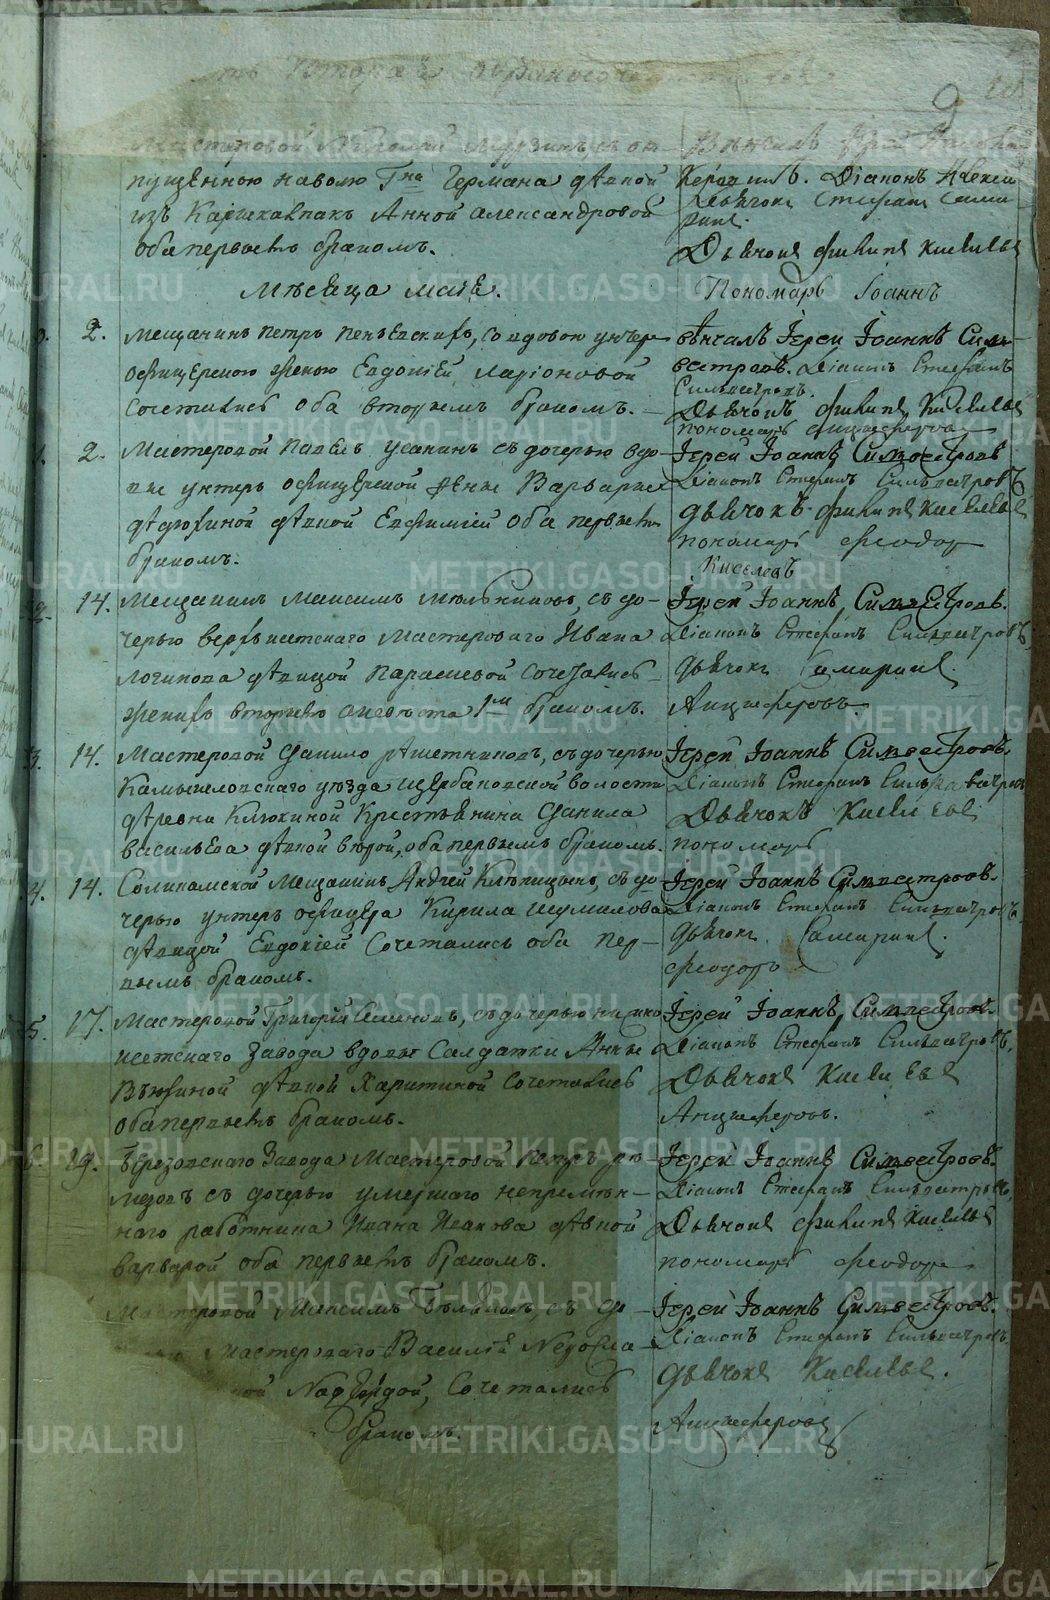 ть Вторая о бракосочетавшихся
9
Мастеровой Николай
пущенною на волю Гна Германа девкой
изъ Каракалпакъ Анной Александровой
оба первымъ бракомъ.
Венчалъ Iерей
Дiаконъ Алексей
Дьячокъ Стефанъ
Дьячокъ Филипъ Киселевъ
Месяца маiя.
Пономарь Iоаннъ
2. Мещанинъ Петръ, со вдовою унтеръ
офицерскою женою Евдокiей Ларiоновой
сочетались оба вторымъ бракомъ.
венчалъ Iерей Iоаннъ Силь-
вестровъ. Дiаконъ Стефанъ
Сильвестровъ.
Дьячокъ Филипъ Киселевъ
пономарь Анциферовъ
2. Мастеровой Павелъ Усанинъ съ дочерью вдо-
вы унтеръ офицерской жены Варвары
девкой Евфимiей оба первымъ
бракомъ.
Iерей Iоаннъ Сильвестровъ
Дiаконъ Стефанъ Сильвестровъ
Дьячокъ Филипъ Киселевъ
пономарь Феодоръ
Киселевъ
14. Мещанинъ Максимъ Мельниковъ, съ до-
черью верхъисетскаго мастероваго Ивана
Логинова девицой Парасковой сочетались
женихъ вторымъ а невеста 1м бракомъ.
Iерей Iоаннъ Сильвестровъ.
Дiаконъ Стефанъ Сильвестровъ
Дьячокъ Самаринъ.
Анциферовъ
14. Мастеровой Данило Решетниковъ, съ дочерью
Камышловскаго уезда Щербаковской волости
деревни Клюкиной крестьянина Данила
Васильева девкой, оба первымъ бракомъ.
Iерей Iоаннъ Сильвестровъ.
Дiаконъ Стефанъ Сильвестровъ
Дьячокъ Киселевъ
пономарь
14. Соликамской мещанинъ Андрей Клепицынъ, съ до-
черью унтеръ офицера Кирила Шумилова
девицой Евдокiей сочетались оба пер-
вымъ бракомъ.
Iерей Iоаннъ Сильвестровъ.
Дiаконъ Стефанъ Сильвестровъ
Дьячокъ Самаринъ.
Феодоръ
5. 17. Мастеровой Григорiй Семеновъ, съ дочерью нижно
исетскаго завода вдовы солдатки Анны
девкой Харитиной сочетались
оба первымъ бракомъ.
Iерей Iоаннъ Сильвестровъ.
Дiаконъ Стефанъ Сильвестровъ,
Дьячокъ Киселевъ
Анциферовъ.
29. Березовскаго завода мастеровой Петръ
съ дочерью умершаго непремен-
наго работника Ивана Исакова девкой
варварой оба первымъ бракомъ.
Iерей Iоаннъ Сильвестровъ.
Дiаконъ Стефанъ Сильвестровъ,
Дьячокъ Филипъ Киселевъ
пономарь Феодоръ
Мастеровой Максимъ, съ до-
мастероваго Василiя
Надеждой, сочетались
бракомъ.
Iерей Iоаннъ Сильвестровъ.
Дiаконъ Стефанъ Сильвестровъ.
Дьячокъ Киселевъ.
Анциферовъ
METRIKI.GASO-URAL.RU